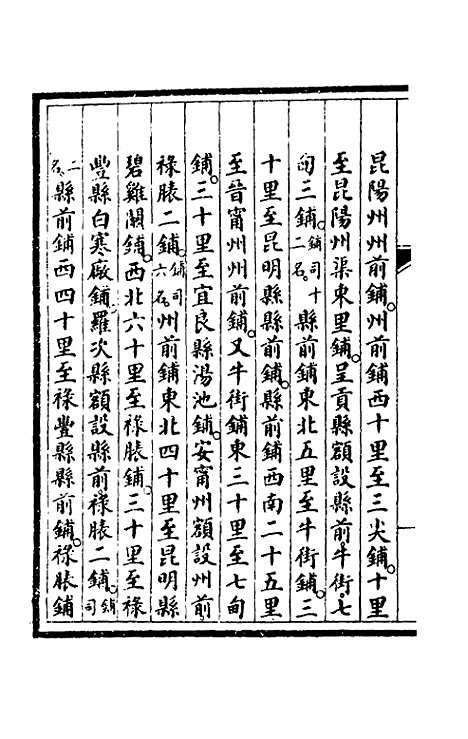 昆陽州州前鋪。州前鋪西十里至三尖鋪。十里
至昆陽州渠東里鋪。呈貢縣額設縣前。牛街。七
甸三鋪。鋪司十二名。縣前鋪東北五里至牛街鋪。三
十里至昆明縣縣前鋪。縣前鋪西南二十五里
至晉甯州州前鋪。又牛街鋪東三十里至七甸
鋪。三十里至宜良縣湯池鋪。安甯州額設州前
祿脿二鋪。鋪司六名。州前鋪東北四十里至昆明縣
碧雞關鋪。西北六十里至祿脿鋪。三十里至祿
豐縣白寒廠鋪。羅次縣額設縣前。祿脿二鋪。鋪司
二名。縣前鋪西四十里至祿豐縣縣前鋪。祿脿鋪